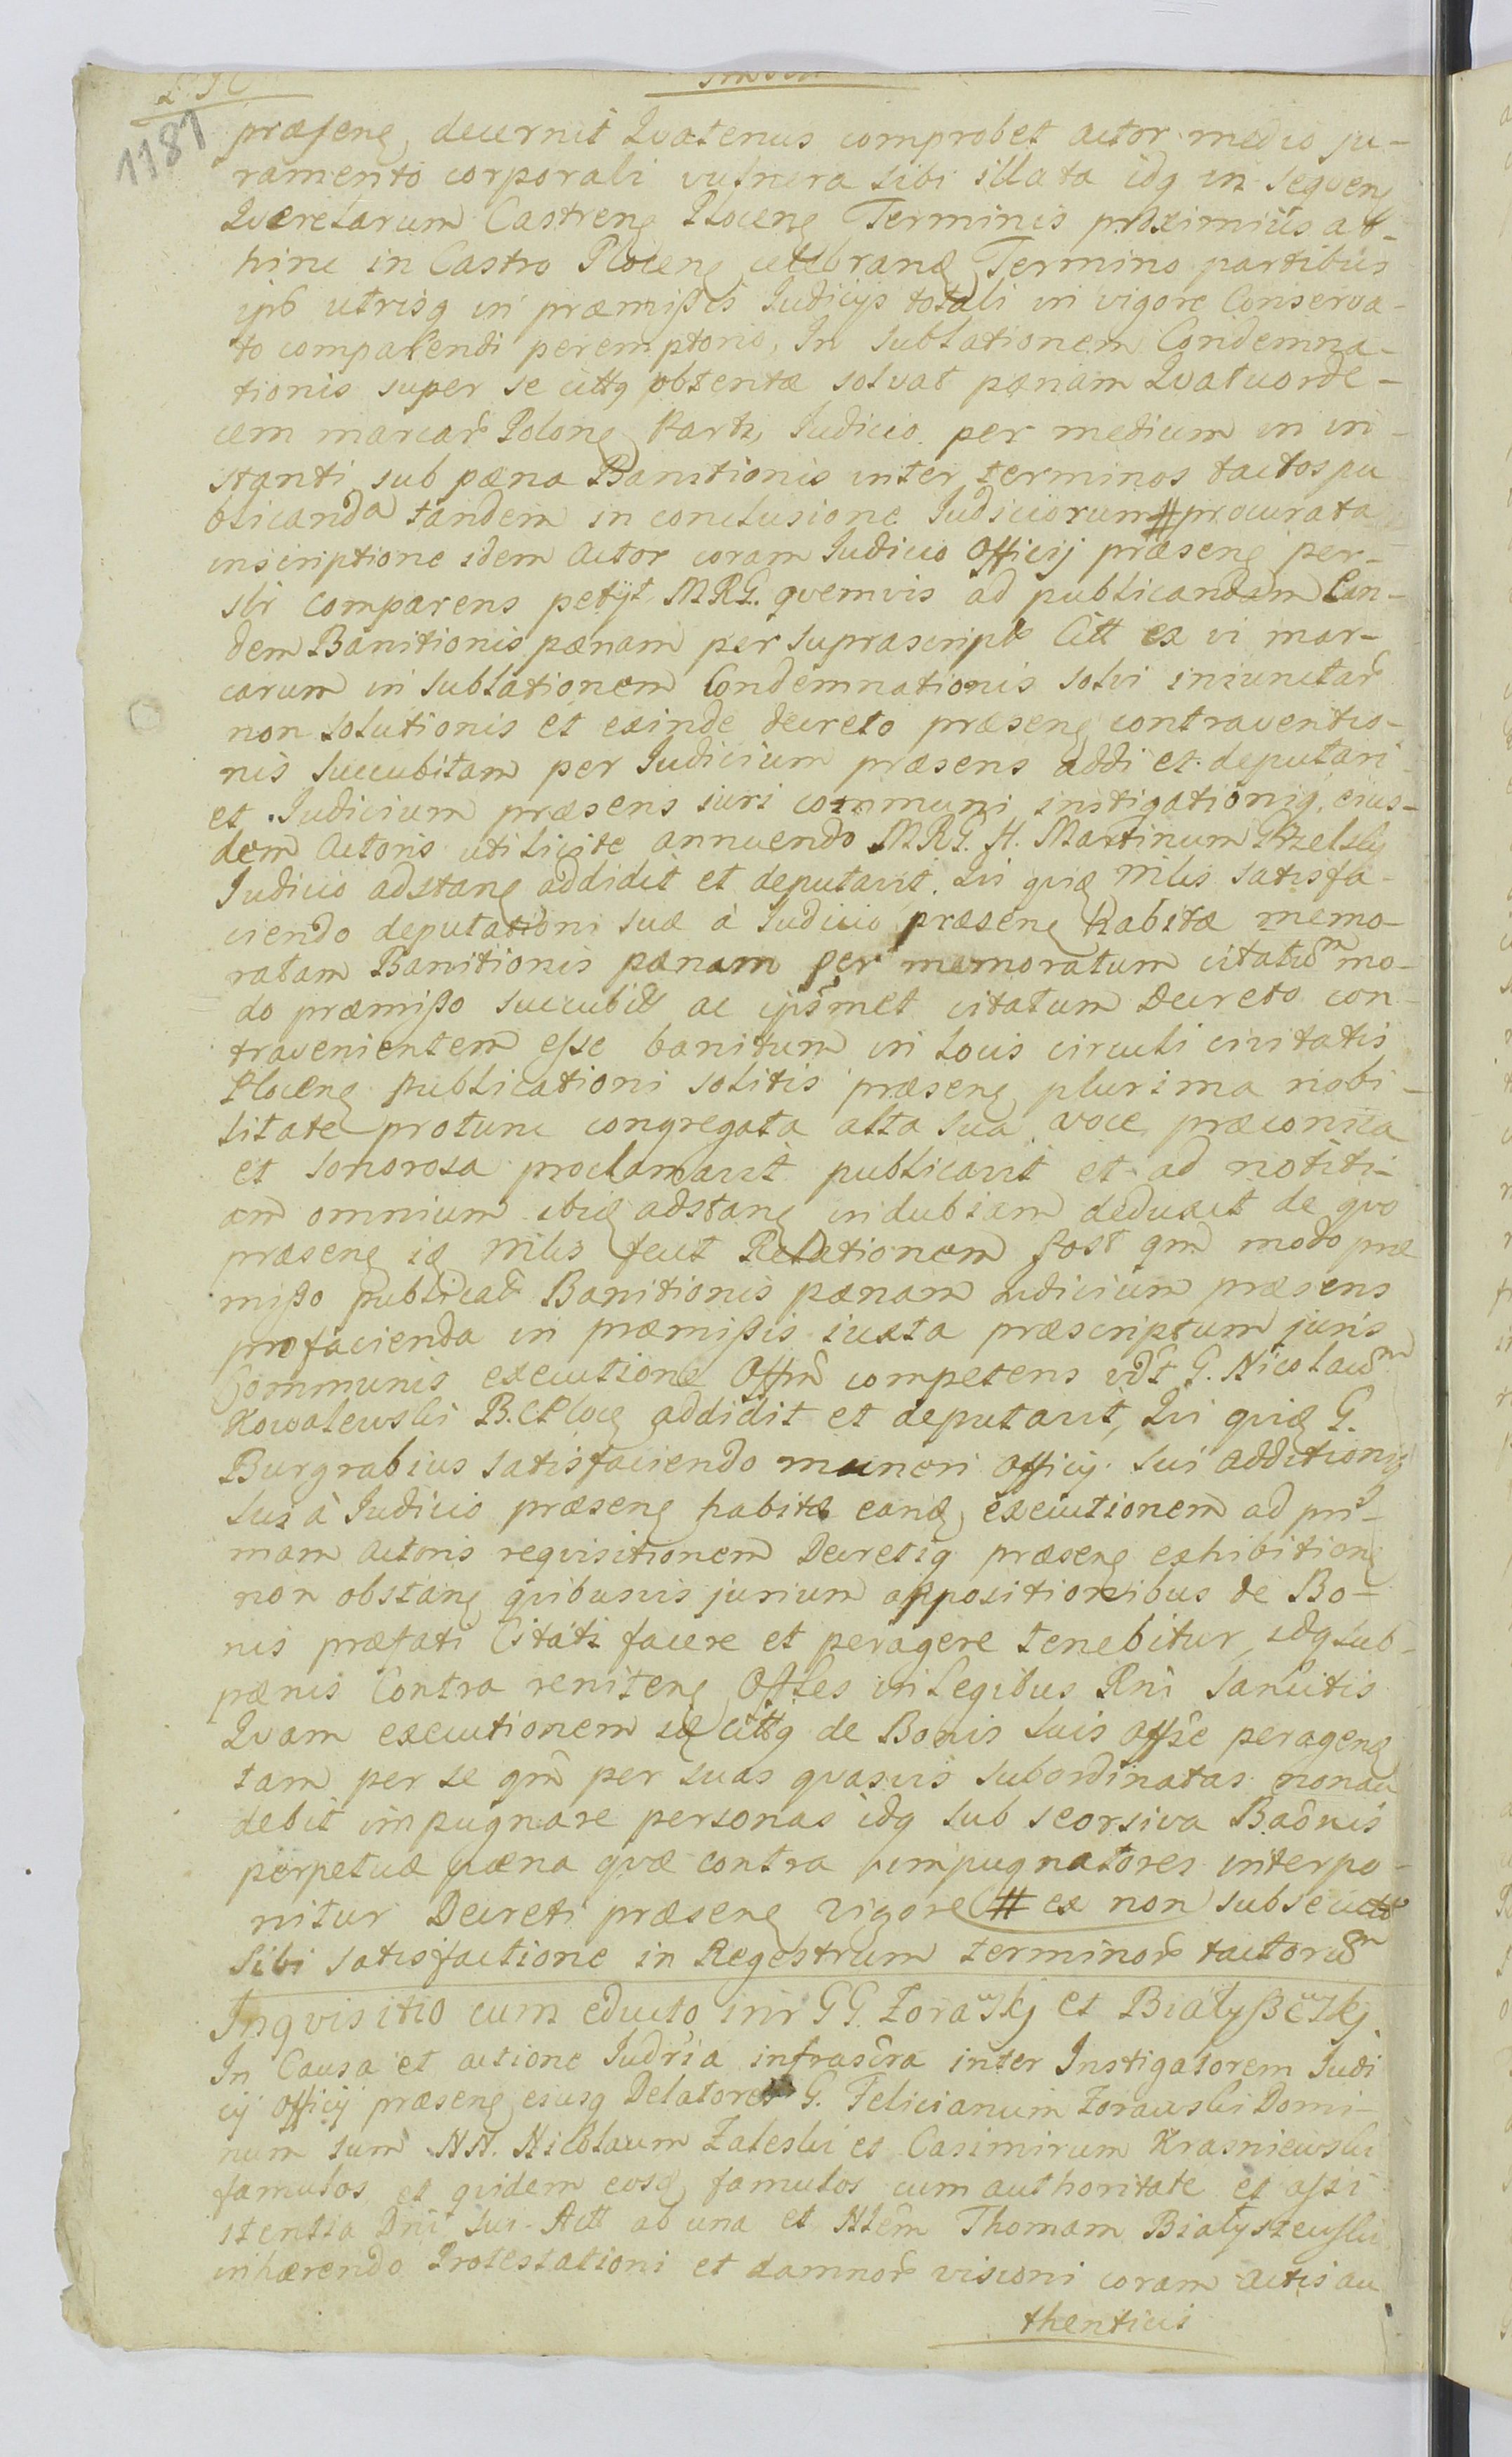 1181
præsens, decernit Qvatenus comprobet actor medio ju-
ramento corporali vulnera sibi illata idq in seqven
Qværelarum Castrens Plocens Terminis proximius ab-
hinc in Castro Plocens celebrand Termino partibus
ipŝ utrisq in præmißis Iudicijs totali in vigore Conserva-
to comparendi peremptorio, In sublationem Condemna-
tionis super se citŧg obtentæ solvat pænam Qvatuorde-
cem marcar̃ Polong Parti, Iudicio per medium in in-
stanti sub pæna Banitionis inter terminos tactos pu
blicanda tandem in conclusione Iudiciorum # procurata
inscriptione idem Actor coram Iudicio Officij præsens per-
slr comparens petijt MRG. qvemvis ad publicandam Ean-
dem Banitionis pænam per suprascripŧ Citŧ ex vi mar-
carum in sublationem Condemnationis solvi iniunctar̃
non solutionis et exinde decreto præsens contraventio-
nis succubitam per Iudicium præsens addi et deputari
et Iudicium præsens iuri communi instigationiq eius-
dem Actoris utiliciте annuendo MRG. H. Martinum Przelski
Iudicio adstans addidit et deputavit. Qui quiđ Mtlis satisfa-
ciendo deputationi suæ à Iudicio præsens habitæ memo-
ratam Banitionis pænam per memoratum citatum mo-
do præmißo succubit ac ipsmet citatum Decreto con-
travenientem esse banitum in locis circuli civitatis
Plocens publicationi solitis præsens plurima nobi-
litate protunc congregata alta sua voce præconica
et sonorosa proclamavit publicavit et ad notiti-
am omnium ibiđ adstans indubiam deduxit de qvo
præsens iđ Mtlis fecit Relationem Post qm̃ modo præ
mißo publicat̃ Banitionis pænam Iudicium præsens
pro facienda in præmißis iuxta præscriptum juris
Communis executione Offm̃ competens vdt G. Nicolaum
Kowalewski B. C Ploc addidit et deputavit, Qvi qviđ G.
Burgrabius satisfaciendo muneri Officij sui additioniq
sui à Iudicio præsens habitæ eand executionem ad pri-
mam Actoris reqvisitionem Decretiq præsens exhibition
non obstans qvibusvis jurium oppositionibus de Bo-
nis præfati Citati facere et peragere tenebitur idq sub-
pænis Contra renitens Offles in legibus Rni Sancitis
Qvam executionem iđ cittg de Bonis suis offse perageng
tam per se qm̃ per suas qvasvis subordinatas non au
debit impugnare personas idq sub seorsiva Baõnis
perpetuæ pæna qvæ contra impugnatores interpo-
nitur Decreti præsens vigore # ex non subsecuta
sibi satisfactione in Regestrum terminor̃ tactorum
Inqvisitio cum educto inr GG. Zorawskj et Białyßewskj
In Causa et actione Iudria infrascra inter Instigatorem Iudi
cij Officij præsens eiusq Delatores G. Felicianum Zorawski Domi-
num sum NN. Nicolaum Zaleski et Casimirum Krasniewski
famulos et qvidem eosđ famulos cum authoritate et assi-
stentia Dni sui Actt ab una et Nlem Thomam Białyszewski
inhærendo Protestationi et damnor̃ visioni coram actis au
thenticis